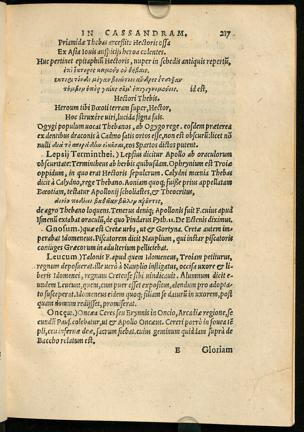 IN CASSANDRAM. 217
Priamidæ Thebas arcessitis Hectoris ossa
Ex Asia Iouis auspicijs heroa colentes.
Huc pertinet epitaphiũ Hectoris, nuper in schedis antiquis repertũ,
id est,
Hectori Thebis.
Heroum tibi Bœoti terram super, Hector,
Hoc struxêre uiri, lucida signa suis.
Ogygi populum uocat Thebanos, ab Ogygo rege. eosdem præterea
ex dentibus draconis à Cadmo satis ortos esse, non est obscurũ: licet nõ
nulli eos Spartos dictos putent.
Lepsij Terminthei.) Lepsius dicitur Apollo ab oraculorum
obscuritate: Terminthens ab herbis quibusdam. Ophrynium est Troiæ
oppidum, in quo erat Hectoris sepulcrum. Calydni mœnia Thebas
dicit à Calydno, rege Thebano. Aonium quoq; fuisse prius appellatam
Bœotiam, testatur Apollonij scholiastes, & Theocritus,
de agro Thebano loquens. Tenerus deniq; Apollonis fuit F. cuius apud
Ismeni extabat oraculũ, de quo Pindarus Pyth. 11. De Essenis diximus.
Gnosum.) quæ est Cretæ urbs, ut & Gortyna. Cretæ autem im-
perabat Idomeneus. Piscatorem dicit Nauplium, qui instar piscatoris
coniuges Græcorum in adulterium pelliciebat.
Leucum.) Talonis F. apud quem Idomeneus, Troiam petiturus,
regnum deposuerat. ille uerò à Nauplio instigatus, occisa uxore & li-
beris Idomenei, regnum Cretense sibi uindicauit. Alumnum dicit e-
undem Leucum, quem, cum puer esset expositus, alendum pro adopta-
to susceperat. Idomeneus eidem quoq; filiam se daturũ in uxorem, post
quam domum redijsset, promiserat.
Oncæq.) Oncæa Ceres seu Erynnis in Oncio, Arcadiæ regione, se
cundũ Paus. colebatur, ut & Apollo Oncæus. Cereri porrò in fouea tẽ
pli, ceu infernæ deæ, sacrum fiebat. cuius geminum quiddam suprà de
Baccho relatum est.
E Gloriam